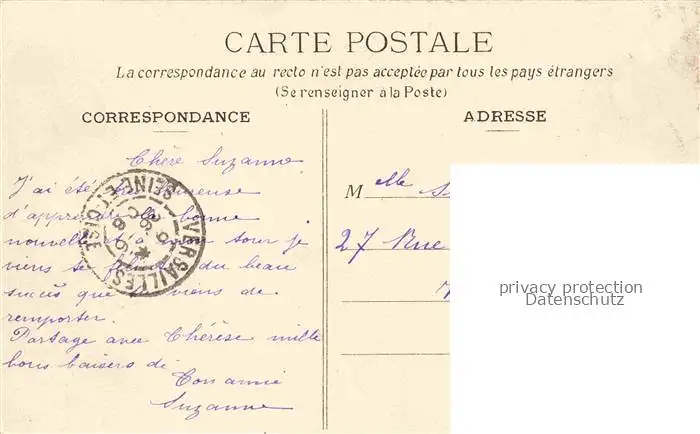 CARTE POSTALE
La correspondance au recto n'est pas acceptée par tous les pays étrangers
(Se renseigner à la Poste)
CORRESPONDANCE
Chère Suzanne
J'ai été heureuse
d'apprendre la bonne
nouvelle et à mon tour je
viens te du beau
succès que viens de
remporter.
Partage avec Thérèse mille
bons baisers de
Ton amie
Suzanne
VERSAILLES
SEINE-ET-OISE
ADRESSE
M elle
27 Rue
privacy protection
Datenschutz